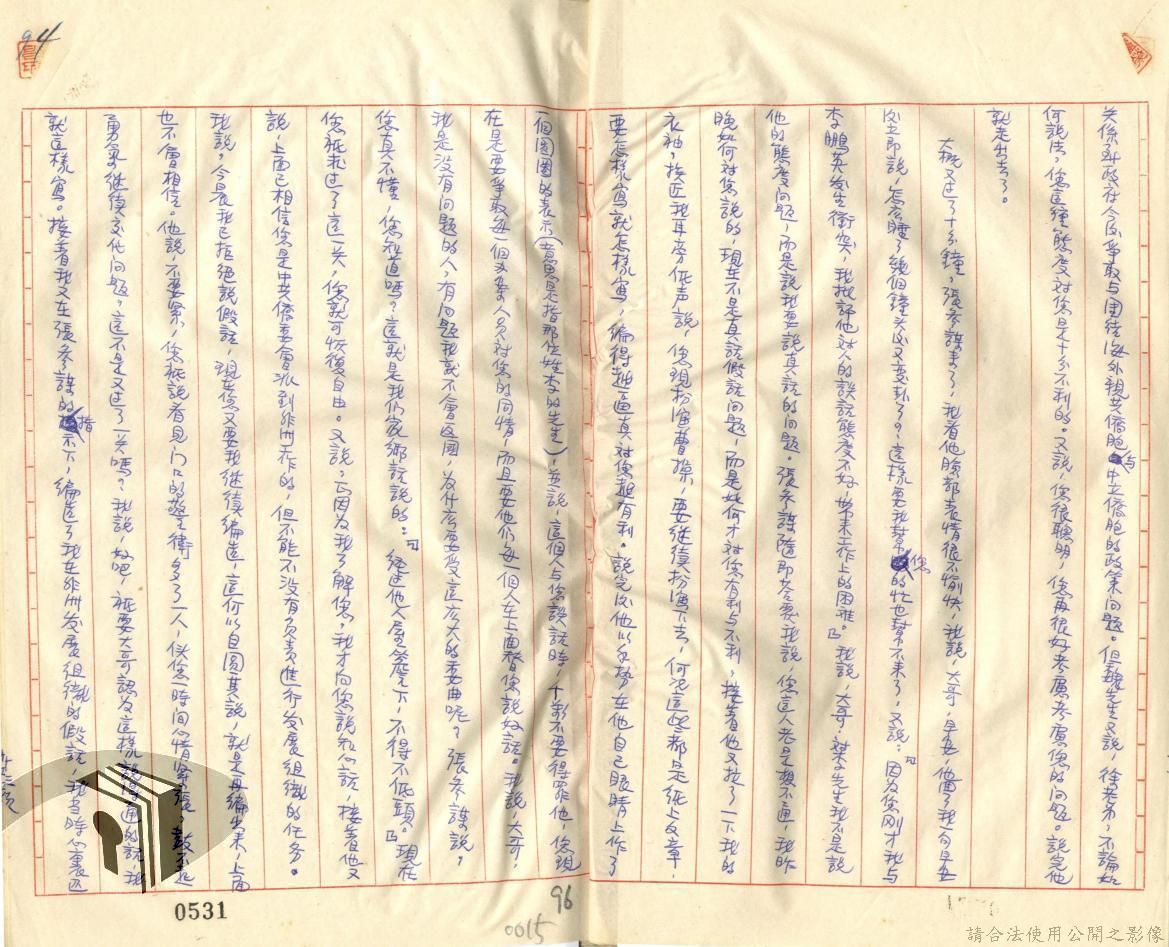 關係到政社今後爭取与團結海外親共僑胞与中立僑胞的政策問題。但魏先生又說,徐老弟,不論如
何說法,您這種態度對您是十分不利的。又說,您很聰明,您再很好考慮考慮您的問題。說完他
就走出去了。
大概又过了十分鐘,張參謀来了,我看他臉部表情很不愉快,我說,大哥,早安,他回了我一句早安
後立即說,怎麼睡了幾個鐘头後又變卦了?這樣要我幫您的忙也幫不来了,又說:「因为您剛才我与
李鵬英發生衝突,我批評他对人的談話態度不好,帶来工作上的困难。」我說,大哥,对李先生我不是說
他的態度问题,而是說我要說真話的问题。張參謀隨即答覆我說,您這人老是想不通,我昨
晚如何对您說的,現在不是真話假話问题,而是如何才对您有利与不利,接着他又拉了一下我的
衣袖,接近我耳旁低声說,您現扮演曹操,要继续扮演下去,何况這些都是纸上文章,
要怎樣寫就怎樣寫,编得越逼真对您越有利。說完後他以手勢在他自己眼睛上作了
一個圓圈的表示(意思是指那位姓李的先生),並說,這個人与您談話時,千萬不要得罪他,您現
在是要爭取每一個办案人員对您的同情,而且要他们每一個人在上面替您說好話。我說,大哥,
我是没有问题的人,有问题我就不會返國,为什広要受這広大的委曲呢?張參謀說,
您真不懂,您知道吗?這就是我们家鄉話說的:「經过他人屋簷下,不得不低頭。」現在
您祇要过了這一关,您就可恢復自由。又說:正因为我了解您,我才向您說私心話,接着他又
說,上面已相信您是中共僑委會派到非洲工作的,但不能不没有負责進行發展組織的任务。
我說,今晨我已拒绝說假話,現在您又要我继续编造,這何以自圆其說,就是再编出来,上面
也不會相信。他說,不要紧,您祇說看見门口的警衛多了一人,使您一時间心情紧張,鼓不起
勇氣继续交代问题,這不是又过了一关吗?我說,好吧,祇要大哥認为這樣說得通的話,我
就這樣寫。接着我又在張參謀的指示下,编造了我在非洲發展組織的假話,我当時心裏返
94
96
0015
0531
請合法使用公開之影像